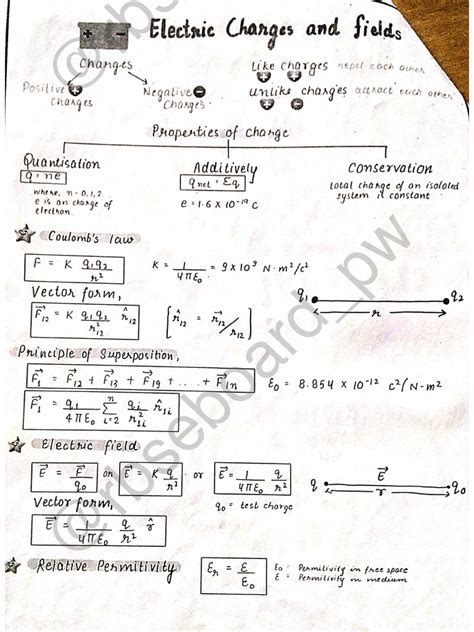 Electric Charges and fields
Charges
Positive + Charges
Negative - Charges
like charges repel each other
+ +
unlike charges attract each other
+ -
Properties of charge
Quantisation
q = ne
where, n = 0, 1, 2
e is an charge of
electron
Additively
q_net = Σq
e = 1.6 × 10⁻¹⁹ C
Conservation
total charge of an isolated
system is constant
Coulomb's law
F = K q₁q₂/r²
K = 1/4πε₀ = 9 × 10⁹ N·m²/c²
Vector form,
F⃗₁₂ = K q₁q₂/r²₁₂ r̂₁₂
[r̂₁₂ = r⃗₁₂/r₁₂]
q₁ r q₂
Principle of Superposition,
F⃗₁ = F⃗₁₂ + F⃗₁₃ + F⃗₁₄ + ... + F⃗₁n
ε₀ = 8.854 × 10⁻¹² c²/N-m²
F⃗₁ = q₁/4πε₀ Σ (i=2 to n) qᵢ/r²₁ᵢ r̂₁ᵢ
Electric field
E⃗ = F⃗/q₀ or E⃗ = K q/r² or E⃗ = 1/4πε₀ q/r²
q₀ = test charge
q E⃗ r q₀
Vector form,
E⃗ = 1/4πε₀ q/r² r̂
Relative Permitivity
εr = ε/ε₀
ε₀ = Permitivity in free space
ε = Permitivity in medium
@rbseboard_pw